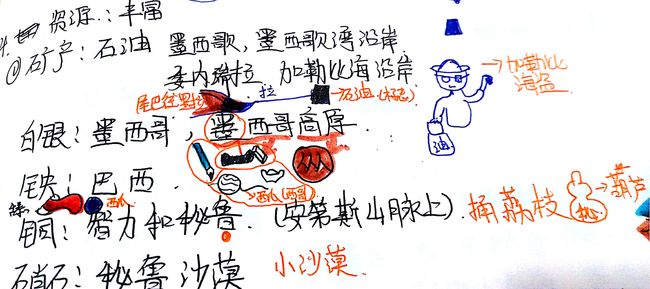 4. 资源:丰富
①矿产:石油 墨西歌,墨西歌湾沿岸
委内瑞拉 加勒比海沿岸
→加勒比海盗
尾巴往里拉
拉
→石油(标志)
油
白银:墨西哥,墨西哥高原
铁:巴西
西瓜(西哥)
西瓜
铜:智力和秘鲁(安第斯山脉上).捅荔枝
秘
→葫芦
硝石:秘鲁沙漠 小沙漠